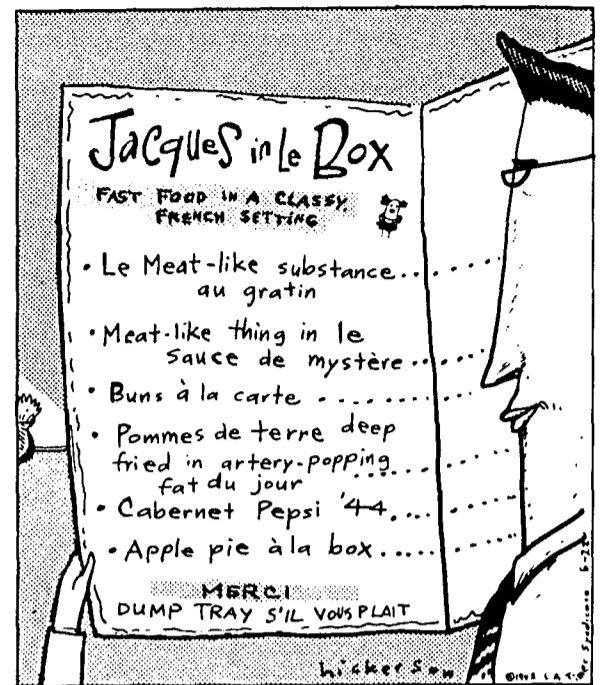 Jacques in Le Box
FAST FOOD IN A CLASSY,
FRENCH SETTING
• Le Meat-like substance....
au gratin
• Meat-like thing in le
sauce de mystère....
• Buns à la carte ........
• Pommes de terre deep
fried in artery-popping
fat du jour
• Cabernet Pepsi '44....
• Apple pie à la box.....
MERCI
DUMP TRAY S'IL VOUS PLAIT
hickerson